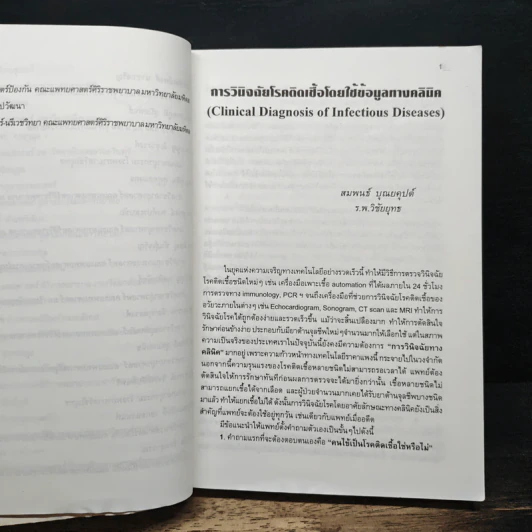 ตร์ป้องกัน คณะแพทยศาสตร์ศิริราชพยาบาล มหาวิทยาลัยมหิดล
ปวัฒนา
ร์-นรีเวชวิทยา คณะแพทยศาสตร์ศิริราชพยาบาล มหาวิทยาลัยมหิดล
1
การวินิจฉัยโรคติดเชื้อโดยใช้ข้อมูลทางคลินิค
(Clinical Diagnosis of Infectious Diseases)
สมพนธ์ บุณยคุปต์
ร.พ.วิชัยยุทธ
ในยุคแห่งความเจริญทางเทคโนโลยีอย่างรวดเร็วนี้ ทำให้มีวิธีการตรวจวินิจฉัย
โรคติดเชื้อชนิดใหม่ๆ เช่น เครื่องมือเพาะเชื้อ automation ที่ได้ผลภายใน 24 ชั่วโมง
การตรวจทาง immunology, PCR ฯ จนถึงเครื่องมือที่ช่วยการวินิจฉัยโรคติดเชื้อของ
อวัยวะภายในต่างๆ เช่น Echocardiogram, Sonogram, CT scan และ MRI ทำให้การ
วินิจฉัยโรคได้ถูกต้องง่ายและรวดเร็วขึ้น แม้ว่าจะสิ้นเปลืองมาก ทำให้การตัดสินใจ
รักษาค่อนข้างง่าย ประกอบกับมียาต้านจุลชีพใหม่ๆจำนวนมากให้เลือกใช้ แต่ในสภาพ
ความเป็นจริงของประเทศเราในปัจจุบันนี้ยังคงมีความต้องการ "การวินิจฉัยทาง
คลินิค" มากอยู่ เพราะความก้าวหน้าทางเทคโนโลยีราคาแพงนี้ กระจายไปในวงจำกัด
นอกจากนี้ความรุนแรงของโรคติดเชื้อหลายชนิดไม่สามารถรอเวลาได้ แพทย์ต้อง
ตัดสินใจให้การรักษาทันทีก่อนผลการตรวจจะได้มายิ่งกว่านั้น เชื้อหลายชนิดไม่
สามารถแยกเชื้อได้จากเลือด และผู้ป่วยจำนวนมากเคยได้รับยาต้านจุลชีพบางชนิด
มาแล้ว ทำให้แยกเชื้อไม่ได้ ดังนั้นการวินิจฉัยโรคโดยอาศัยลักษณะทางคลินิคยังเป็นสิ่ง
สำคัญที่แพทย์จะต้องใช้อยู่ทุกวัน เช่นเดียวกับแพทย์เมื่ออดีต
มีข้อแนะนำให้แพทย์ตั้งคำถามตัวเองเป็นขั้นๆไปดังนี้
1. คำถามแรกที่จะต้องตอบตนเองคือ "คนไข้เป็นโรคติดเชื้อใช่หรือไม่"